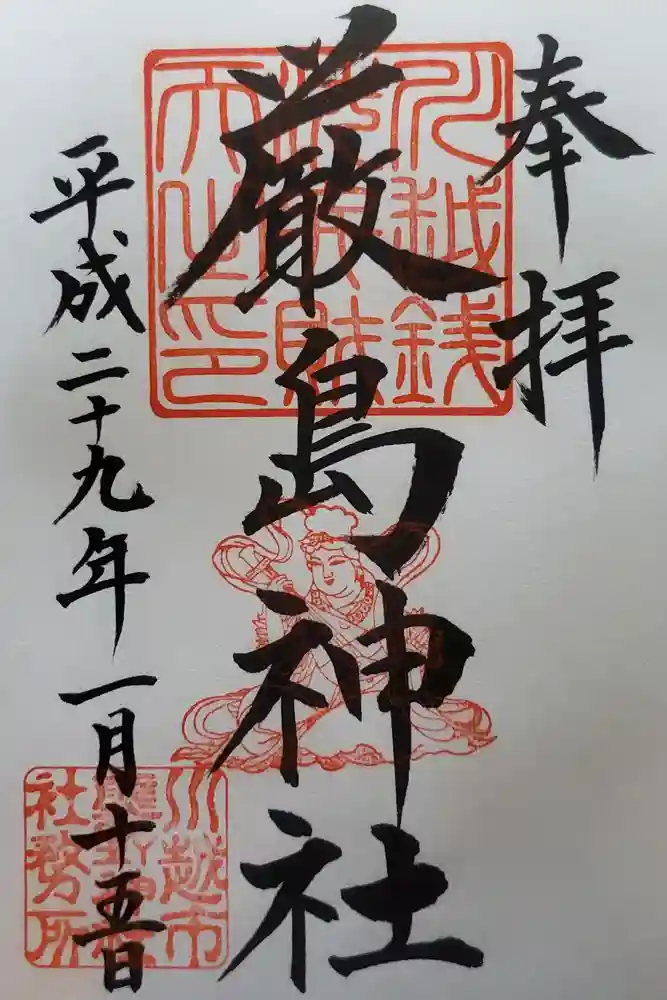 奉拝
川越銭
洗弁財
天之印
厳島神社
平成二十九年一月十五日
川越市
熊野神社
社務所